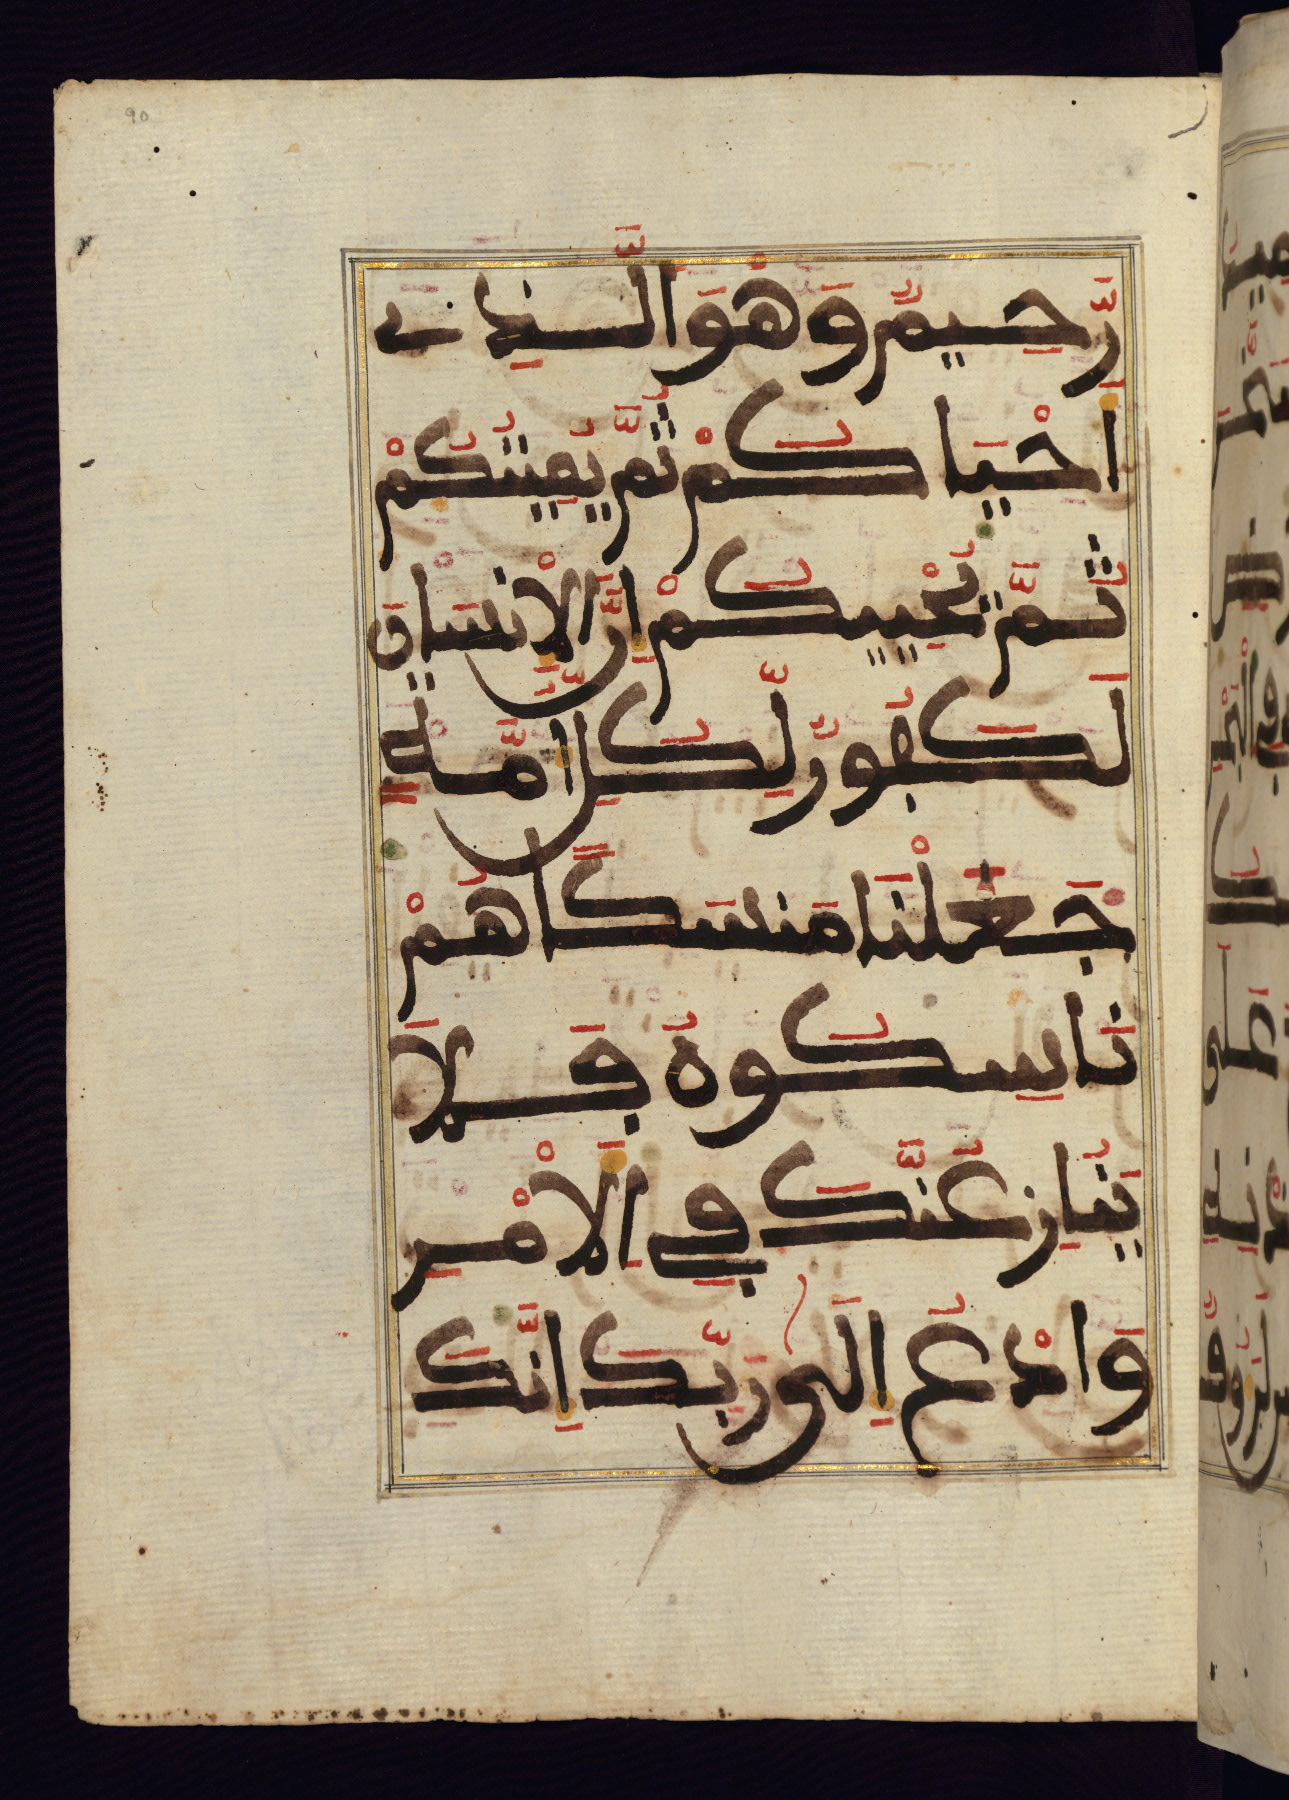 90
رَّحِيمٌ وَهْوَ الَّذِے
أَحْيَاكُمْ ثُمَّ يُمِيتُكُمْ
ثُمَّ يُحْيِيكُمْ إِنَّ الْإِنسَانَ
لَكَفُورٌ لِّكُلِّ أُمَّةٍ
جَعَلْنَا مَنسَكًا هُمْ
نَاسِكُوهُ فَلَا
يُنَازِعُنَّكَ فِي الْأَمْرِ
وَادْعُ إِلَىٰ رَبِّكَ إِنَّكَ